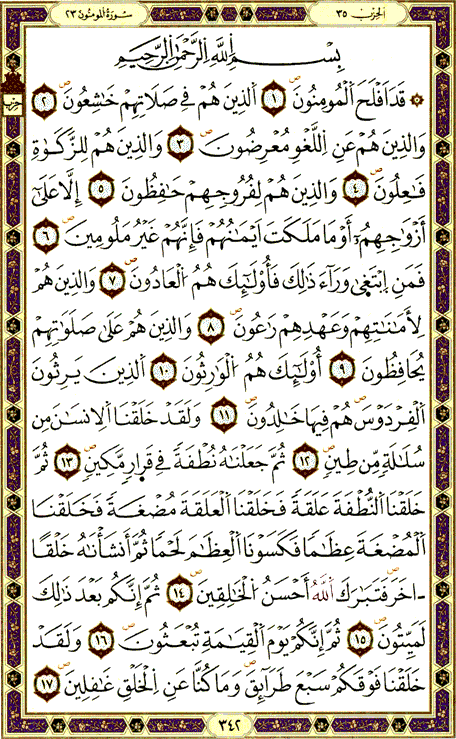 الحزب ٣٥
سورة المومنون ٢٣
بِسْمِ اِ۬للَّهِ اِ۬لرَّحْمَٰنِ اِ۬لرَّحِيمِ
قَدَ اَفْلَحَ اَ۬لْمُومِنُونَ ١ اَ۬لذِينَ هُمْ فِے صَلَاتِهِمْ خَٰشِعُونَ ٢
وَالذِينَ هُمْ عَنِ اِ۬للَّغْوِ مُعْرِضُونَ ٣ وَالذِينَ هُمْ لِلزَّكَوٰةِ
فَٰعِلُونَ ٤ وَالذِينَ هُمْ لِفُرُوجِهِمْ حَٰفِظُونَ ٥ إِلَّا عَلَىٰٓ
أَزْوَٰجِهِمُۥٓ أَوْ مَا مَلَكَتَ اَيْمَٰنُهُمْ فَإِنَّهُمْ غَيْرُ مَلُومِينَ ٦
فَمَنِ اِ۪بْتَغ۪ىٰ وَرَآءَ ذَٰلِكَ فَأُوْلَٰٓئِكَ هُمُ اُ۬لْعَادُونَ ٧ وَالذِينَ هُمْ
لِأَمَٰنَٰتِهِمْ وَعَهْدِهِمْ رَٰعُونَ ٨ وَالذِينَ هُمْ عَلَىٰ صَلَوَٰتِهِمْ
يُحَافِظُونَ ٩ أُوْلَٰٓئِكَ هُمُ اُ۬لْوَٰرِثُونَ ١٠ اَ۬لذِينَ يَرِثُونَ
اَ۬لْفِرْدَوْسَ هُمْ فِيهَا خَٰلِدُونَ ١١ وَلَقَدْ خَلَقْنَا اَ۬لِانسَٰنَ مِن
سُلَٰلَةٍ مِّن طِينٍ ١٢ ثُمَّ جَعَلْنَٰهُ نُطْفَةً فِے قَرَارٍ مَّكِينٍ ١٣ ثُمَّ
خَلَقْنَا اَ۬لنُّطْفَةَ عَلَقَةً فَخَلَقْنَا اَ۬لْعَلَقَةَ مُضْغَةً فَخَلَقْنَا
اَ۬لْمُضْغَةَ عِظَٰمًا فَكَسَوْنَا اَ۬لْعِظَٰمَ لَحْمًا ثُمَّ أَنشَأْنَٰهُ خَلْقًا
اٰخَرَ فَتَبَٰرَكَ اَ۬للَّهُ أَحْسَنُ اُ۬لْخَٰلِقِينَ ١٤ ثُمَّ إِنَّكُم بَعْدَ ذَٰلِكَ
لَمَيِّتُونَ ١٥ ثُمَّ إِنَّكُمْ يَوْمَ اَ۬لْقِيَٰمَةِ تُبْعَثُونَ ١٦ وَلَقَدْ
خَلَقْنَا فَوْقَكُمْ سَبْعَ طَرَآئِقَ وَمَا كُنَّا عَنِ اِ۬لْخَلْقِ غَٰفِلِينَ ١٧
٣٤٢